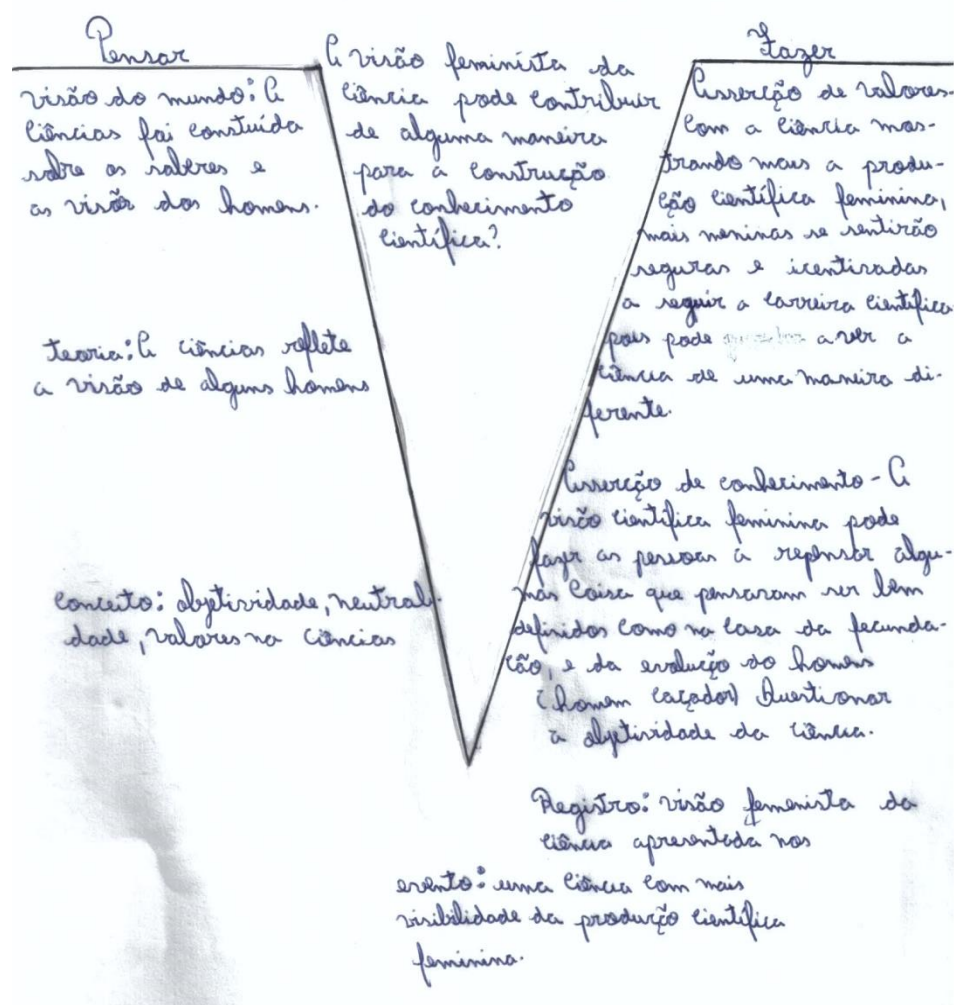 Pensar
visão do mundo: A
Ciências foi constuída
sobre os saberes e
as visões dos homens.
teoria: A ciências reflete
a visão de alguns homens
conceito: objetividade, neutrali-
dade, valores na ciências
A visão feminista da
Ciência pode contribuir
de alguma maneira
para a construção
do conhecimento
Científica?
Fazer
Asserção de valores-
Com a Ciência mos-
trando mais a produ-
ção Científica feminina,
mais meninas se sentirão
seguras e icentivadas
a seguir a carreira Científica
pois pode a ver a
Ciência de uma maneira di-
ferente.
Asserção de conhecimento - A
visão científica feminina pode
fazer as pessoas a repensar algu-
mas Coisa que pensaram ser bem
definidos Como no caso da fecunda-
ção, e da evolução do homem
(homem caçador) Questionar
a objetividade da Ciência.
Registro: visão femenista da
Ciência apresentada nos
evento: uma Ciência Com mais
visibilidade da produção Científica
feminina.